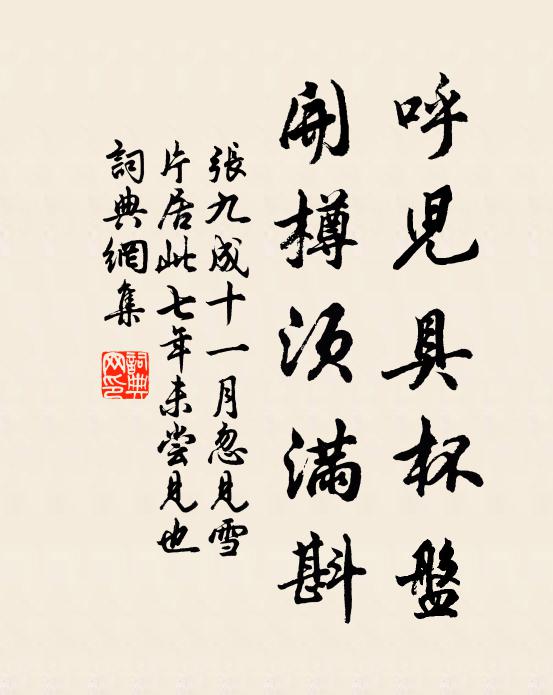 呼児具杯盤
開樽須満斟
張九成十一月忽見雪
片居此七年未嘗見也
詞典網集
詞典网印